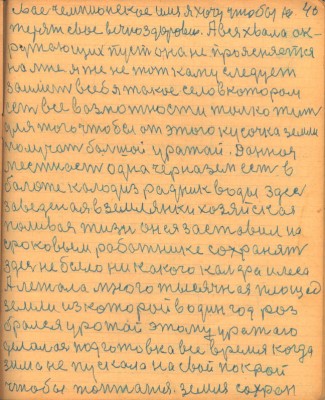 свое чемпионское имя я хочу чтобы не 40
терят свое вечноздоровие. А вся хвала ок-
ружающих пуст она не проясняется
на мне. я же не тот каму следует
заимет в себя такое село в котором
сет все возможности только жит
для того чтобы от этого кусочка земли
получат большой уражай. Данная
местност одна чернозем сет в
болоте колодиз радник воды здес
заведеная в землянки хозяйская
паливая жизн он ся заставили на
сроковым работнике сохранят
здес не было ни какого калхдра и леса
А лежала много тысячная площад
земли из которой в один год роз
брался уротай этому уратаю
делалая подготовка все время когда
зима не пускала на свой покрой
чтобы топтатия. земля сохран